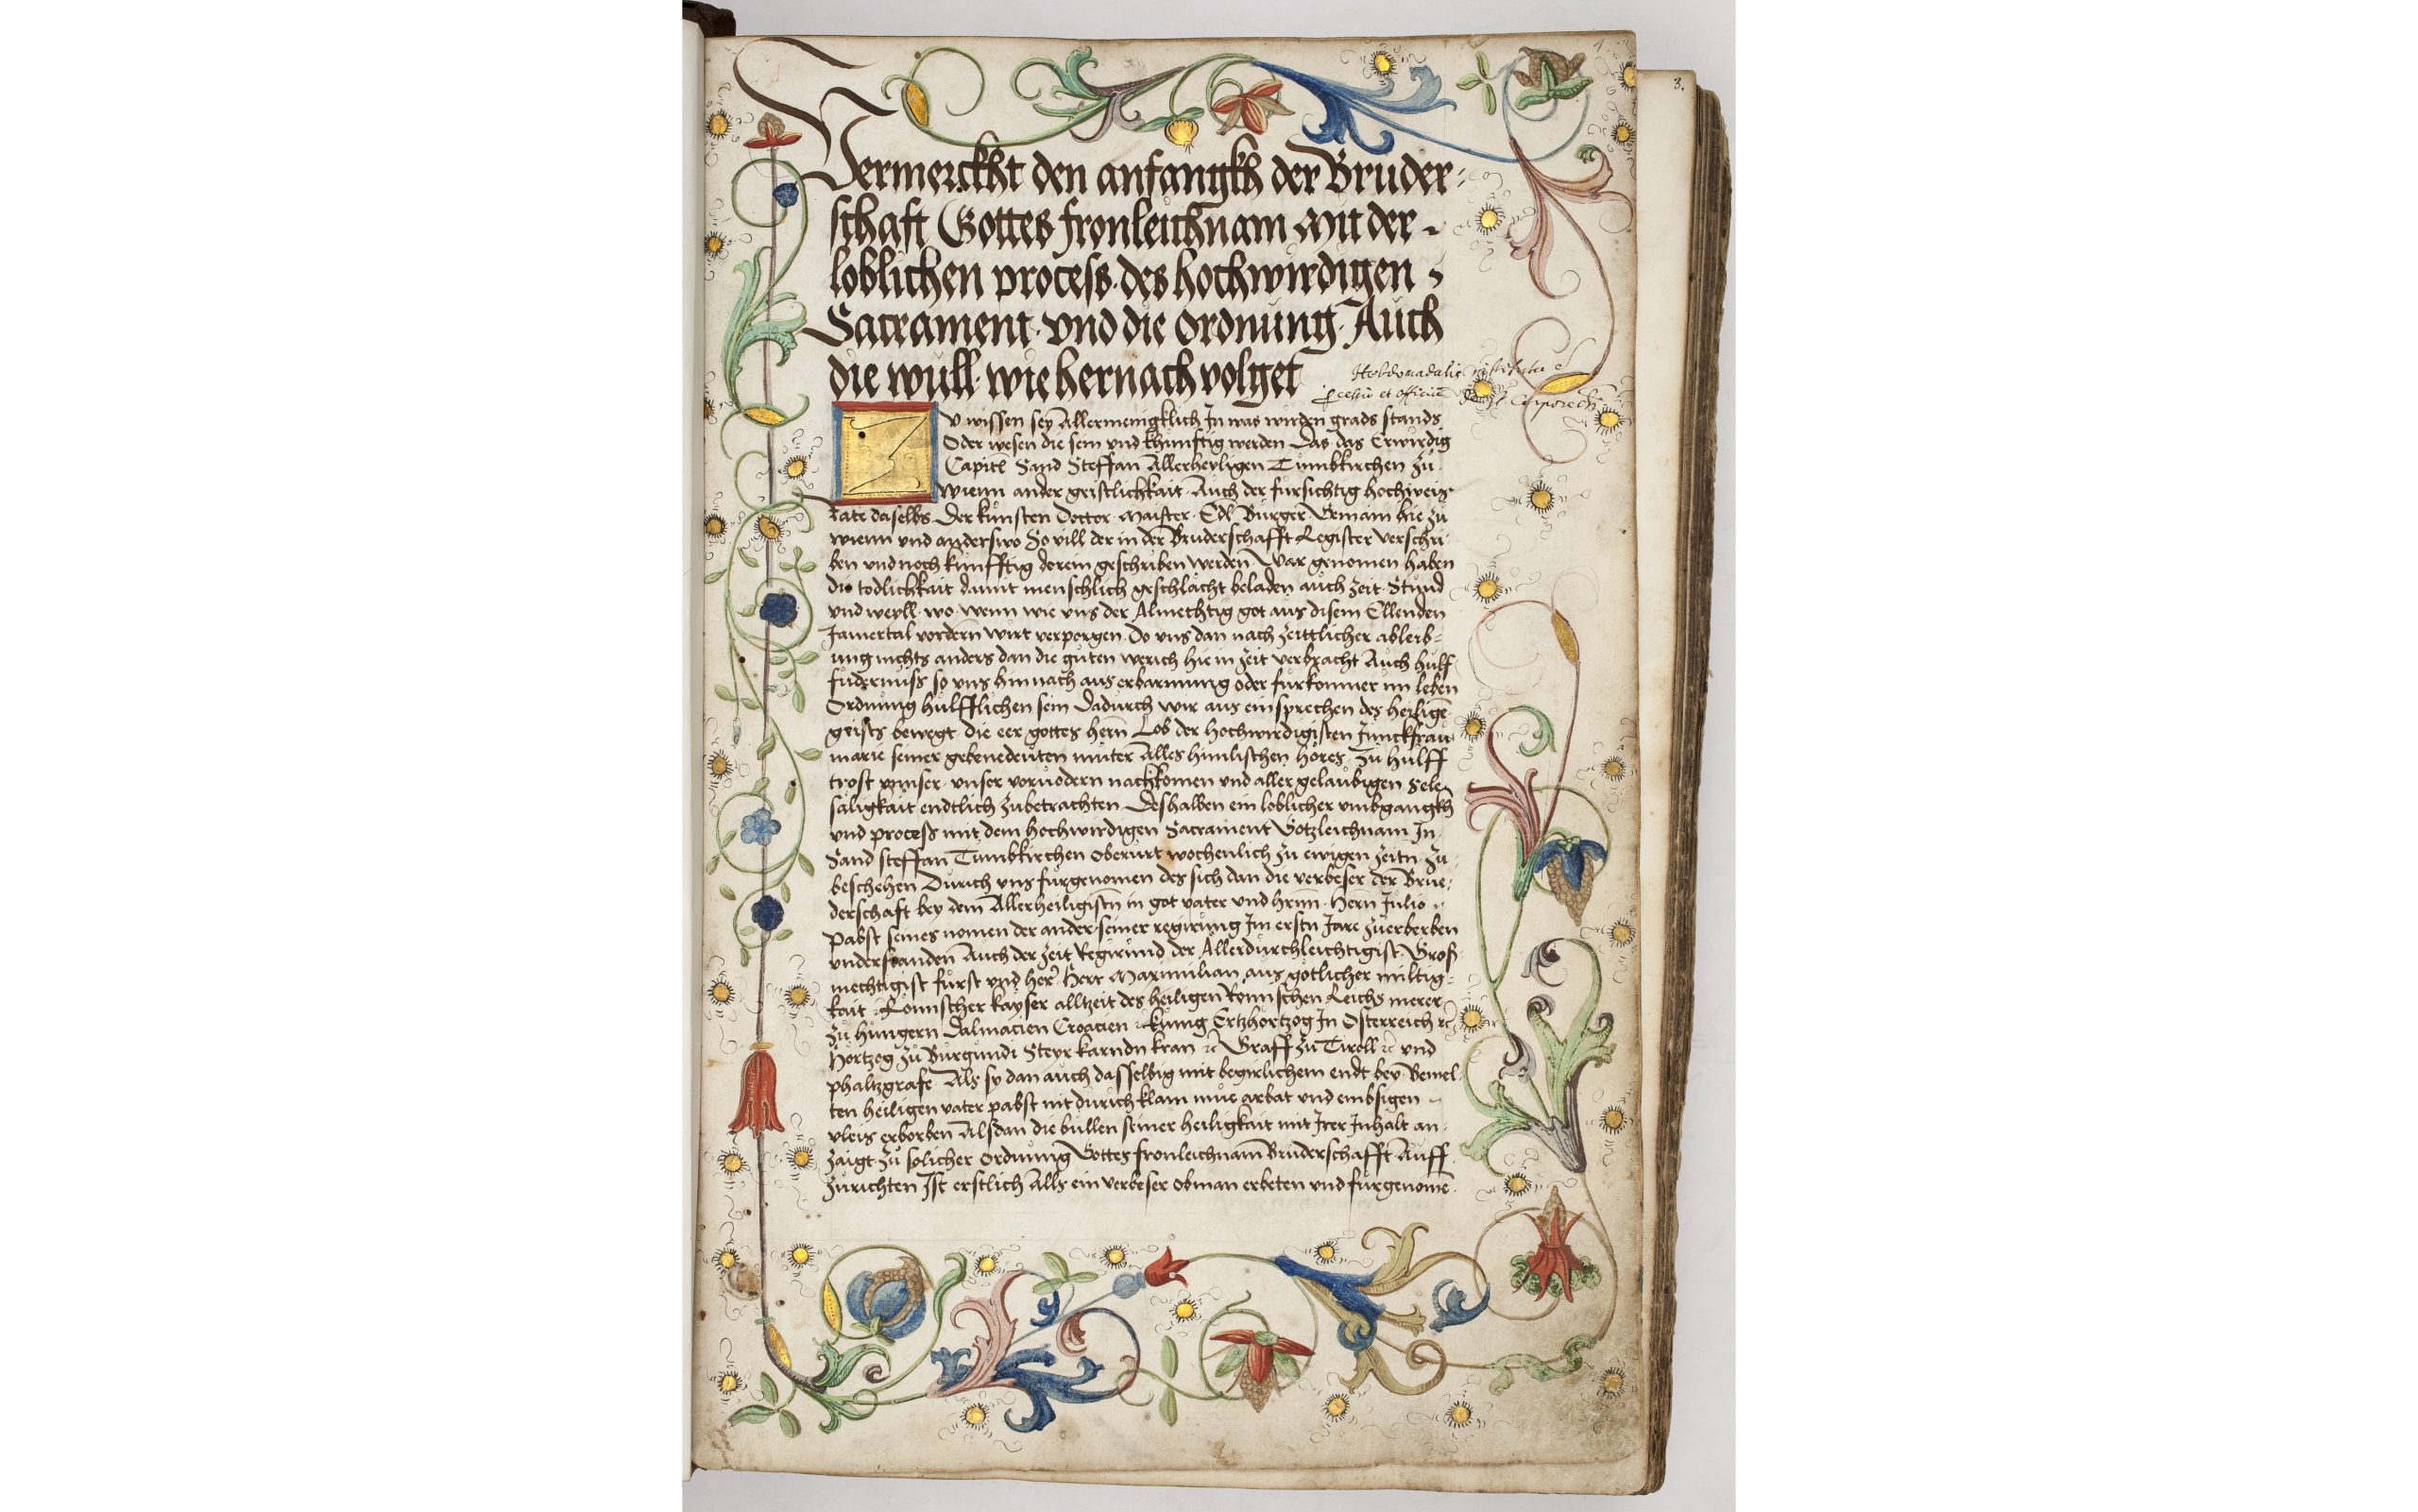 3.
Vermerckht den anfangkh der Bruder-
schaft Gottes fronleichnam Mit der
loblichen process des hochwirdigen
Sacrament vnd die ordnung Auch
die wull wie hernach volget
Hebdomadalis
processus et officium Corporis
Zv wissen sey Allermenigklich In was wirden grads stands
Oder wesen die sein vnd khunftig werden Das das Erwirdig
Capitl Sand Steffan Allerheyligen Tumbkirchen zu
Wienn ander geistlichkait Auch der fursichtig hochweis
rate daselbs Der kunsten Doctor Maister Edl Burger Gemain hie zu
wienn vnd anderswo So vill der in der Bruderschafft Register verschri
ben vnd noch kunfftig darein geschriben werden War genomen haben
die todlichkait damit menschlich geschlacht beladen auch zeit Stund
vnd weyll wo wenn wie vns der Almechtig got aus disem Ellenden
Jamertal vordern wirt verporgen Do vns dan nach zeittlicher ableib-
ung nichts anders dan die guten werich hie in zeit verbracht Auch hulf
fudernuss so vns hinnach aus erbarmung oder furkomner im leben
Ordnung hulfflichen sein Dadurch wir aus einsprechen des heilige
geists bewegt die eer gottes hern Lob der hochwirdigisten Junckfrau
marie seiner gebenedeiten muter Alles himlischen hores Zu hulff
trost vnnser vnser voruodern nachkomen vnd aller gelaubigen Sele
saligkait endtlich zubetrachten Deshalben ein loblicher vmbgangkh
vnd process mit dem hochwirdigen Sacrament Gotzleichnam In
Sand steffan Tumbkirchen oberurt wochenlich zu ewigen zeitn zu
beschehen Durich vns furgenomen des sich dan die verbeser der Brue-
derschaft bey dem Allerheiligistn in got vater vnd hrnn Hern Julio
Pabst seines nomen der ander seiner regirung Im erstn Jare zuerberben
understanden Auch der zeit Regirund der Allerdurchleichtigist Groß
mechtigist furst vnd her Herr Maximilian aus gotlicher miltig-
kait Romischer kayser allzeit des heiligen Romischen Reichs merer
zu Hungern Dalmacien Croacien kunig Ertzhertzog In Osterreich
Hertzog zu Burgundi Steyr karndn kran Graff zu Tiroll vnd
phaltzgrafe Als sy dan auch dasselbig mit begirlichem endt bey Bemel
ten heiligen vater pabst nit durich klain mue arbat vnd embsigen
vleis erborben Alsdan die bullen seiner heiligkait mit Irer Inhalt an
zaigt zu solicher ordnung Gottes fronleichnam Bruderschafft Auff
zurichten Ist erstlich Alls ein verbeser obman erbeten vnd furgenome